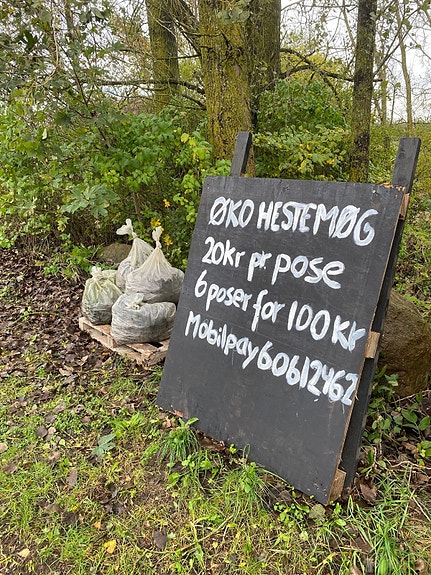 ØKO HESTEMØG
20kr pr. pose
6 poser for 100 kr
Mobilpay 60612462